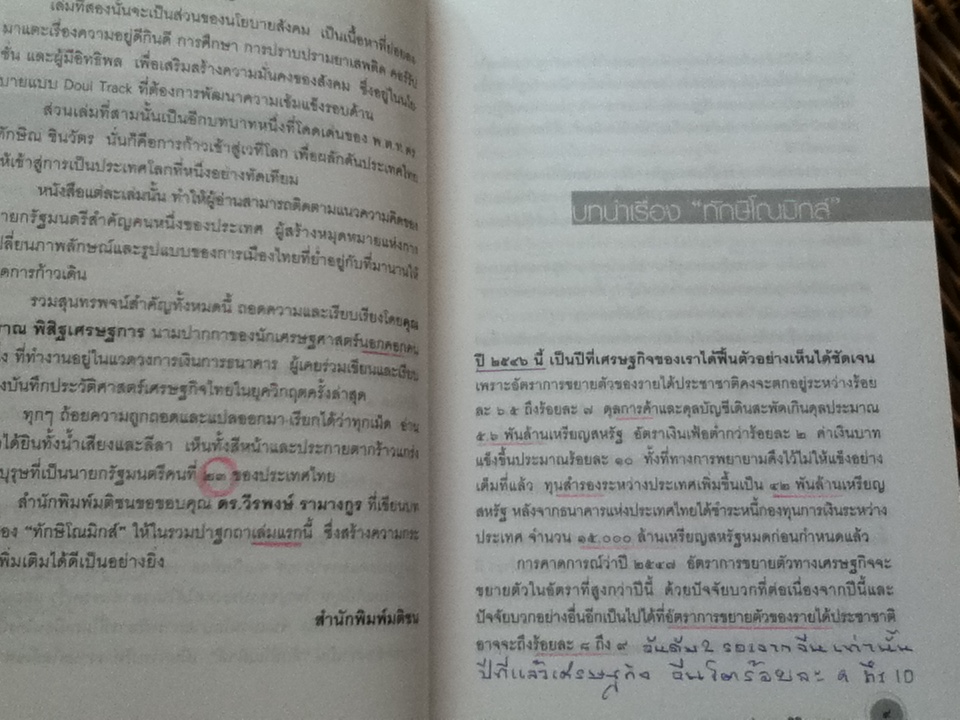 เล่มที่สองนั้นจะเป็นส่วนของนโยบายสังคม เป็นเนื้อหาที่ย่อยลง
มาแตะเรื่องความอยู่ดีกินดี การศึกษา การปราบปรามยาเสพติด คอร์รัป
ชั่น และผู้มีอิทธิพล เพื่อเสริมสร้างความมั่นคงของสังคม ซึ่งอยู่ในนโย
บายแบบ Doul Track ที่ต้องการพัฒนาความเข้มแข็งรอบด้าน
ส่วนเล่มที่สามนั้นเป็นอีกบทบาทหนึ่งที่โดดเด่นของ พ.ต.ท.ดร.
ทักษิณ ชินวัตร นั่นก็คือการก้าวเข้าสู่เวทีโลก เพื่อผลักดันประเทศไทย
ให้เข้าสู่การเป็นประเทศโลกที่หนึ่งอย่างทัดเทียม
หนังสือแต่ละเล่มนั้น ทำให้ผู้อ่านสามารถติดตามแนวความคิดของ
ายกรัฐมนตรีสำคัญคนหนึ่งของประเทศ ผู้สร้างหมุดหมายแห่งการ
ปลี่ยนภาพลักษณ์และรูปแบบของการเมืองไทยที่ย่ำอยู่กับที่มานานให้
ดการก้าวเดิน
รวมสุนทรพจน์สำคัญทั้งหมดนี้ ถอดความและเรียบเรียงโดยคุณ
ราณ พิสิฐเศรษฐการ นามปากกาของนักเศรษฐศาสตร์นอกคอกคน
ง ที่ทำงานอยู่ในแวดวงการเงินการธนาคาร ผู้เคยร่วมเขียนและเรียบ
งบันทึกประวัติศาสตร์เศรษฐกิจไทยในยุควิกฤตครั้งล่าสุด
ทุกๆ ถ้อยความถูกถอดและแปลออกมา เรียกได้ว่าทุกเม็ด อ่าน
ได้ยินทั้งน้ำเสียงและลีลา เห็นทั้งสีหน้าและประกายตากร้าวแกร่ง
บุรุษที่เป็นนายกรัฐมนตรีคนที่ ๒๓ ของประเทศไทย
สำนักพิมพ์มติชนขอขอบคุณ ดร.วีรพงษ์ รามางกูร ที่เขียนบท
อง “ทักษิโณมิกส์” ให้ในรวมปาฐกถาเล่มแรกนี้ ซึ่งสร้างความกระ
พิ่มเติมได้ดีเป็นอย่างยิ่ง
สำนักพิมพ์มติชน
บทนำเรื่อง “ทักษิโณมิกส์”
ปี ๒๕๔๖ นี้ เป็นปีที่เศรษฐกิจของเราได้ฟื้นตัวอย่างเห็นได้ชัดเจน
เพราะอัตราการขยายตัวของรายได้ประชาชาติคงจะตกอยู่ระหว่างร้อย
ละ ๖.๕ ถึงร้อยละ ๗ ดุลการค้าและดุลบัญชีเดินสะพัดเกินดุลประมาณ
๕.๖ พันล้านเหรียญสหรัฐ อัตราเงินเฟ้อต่ำกว่าร้อยละ ๒ ค่าเงินบาท
แข็งขึ้นประมาณร้อยละ ๑๐ ทั้งที่ทางการพยายามดึงไว้ไม่ให้แข็งอย่าง
เต็มที่แล้ว ทุนสำรองระหว่างประเทศเพิ่มขึ้นเป็น ๔๒ พันล้านเหรียญ
สหรัฐ หลังจากธนาคารแห่งประเทศไทยได้ชำระหนี้กองทุนการเงินระหว่าง
ประเทศ จำนวน ๑๕,๐๐๐ ล้านเหรียญสหรัฐหมดก่อนกำหนดแล้ว
การคาดการณ์ว่าปี ๒๕๔๗ อัตราการขยายตัวทางเศรษฐกิจจะ
ขยายตัวในอัตราที่สูงกว่าปีนี้ ด้วยปัจจัยบวกที่ต่อเนื่องจากปีนี้และ
ปัจจัยบวกอย่างอื่นอีกเป็นไปได้ที่อัตราการขยายตัวของรายได้ประชาชาติ
อาจจะถึงร้อยละ ๘ ถึง ๙ อันดับ 2 รองจากจีนเท่านั้น
ปีที่แล้วเศรษฐกิจ จีนโตร้อยละ ๙ ถึง 10
๙